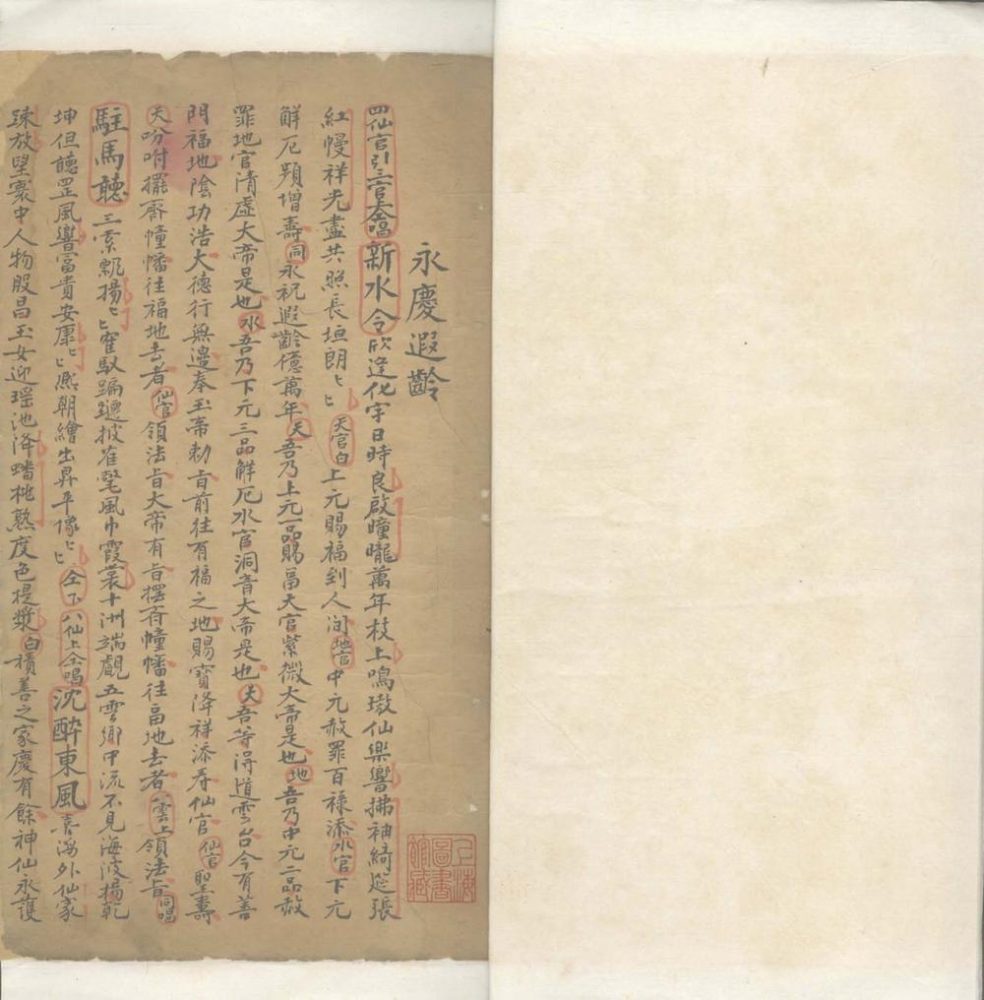 永慶遐齡
四仙官引三官大帝唱新水令欣逢化宇日時良啟曈曨萬年枝上鳴璈仙樂響拂袖綺筵張
紅幔祥光盡共照長垣朗匕匕天官白上元賜福到人間地官中元赦罪百祿添水官下元
觧厄頻增壽同永祝遐齡億萬年天吾乃上元一品賜畐天官紫微大帝是也地吾乃中元二品赦
罪地官清虛大帝是也水吾乃下元三品觧厄水官洞音大帝是也天吾等淂道雲台今有善
門福地陰功浩大德行無邊奉玉帝勑㫖前往有福之地賜寶降祥添壽仙官仙官聖壽
天吩咐擺齊幢幡往福地去者仙官領法㫖大帝有㫖擺齊幢幡往畐地去者雲上領法㫖同唱
駐馬聽三素飄揚匕匕隺馭蹁躚披隺氅風巾霞裳十洲端覷五雲鄉中流不見海波揚乾
坤但聽罡風響富貴安康匕匕熈朝繪出昇平像匕匕仝下八仙上仝唱沈醉東風喜海外仙家
踈放望寰中人物殷昌玉女迎瑶池降蟠桃熟度色提漿白積善之家慶有餘神仙永護
上海圖書館藏